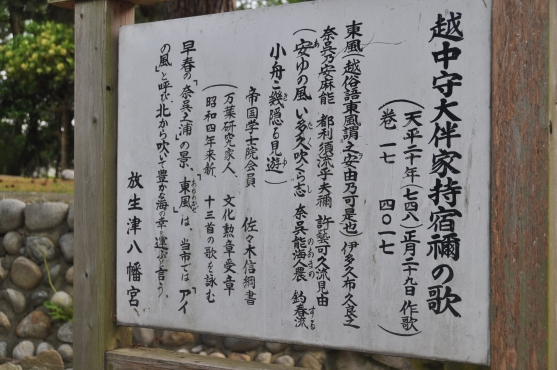 越中守大伴家持宿禰の歌
(天平二十年(七四八)正月二十九日 作歌)
巻一七 四〇一七
東風(越俗語東風謂之安由乃可是也)伊多久布久良之
奈呉乃安麻能 都利須流乎夫禰 許藝可久流見由
(安ゆの風 い多久吹くら志 奈呉能海人農 釣春流
あ たく し のあまの する
小舟こ幾隠る見遊)
ぎ ゆ
帝国学士院会員 佐々木信綱書
(万葉研究家人、 文化勲章受章
昭和四年来新、 十三首の歌を詠む
早春の「奈呉之浦」の景、「東風」は、当市では「アイ
の風」と呼び、北から吹いて豊かな海の幸を運ぶと言う。
放生津八幡宮